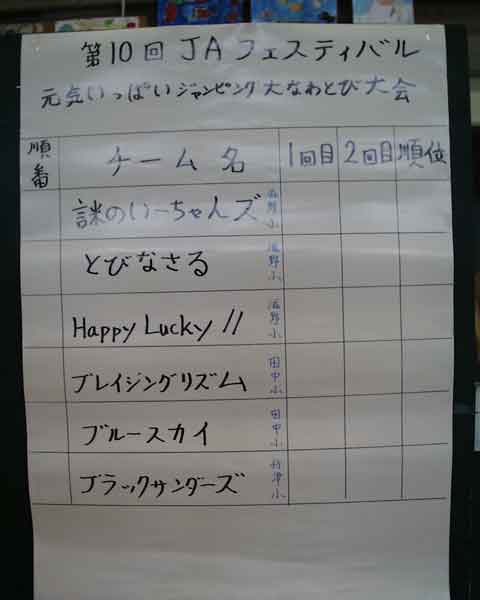 第10回 JAフェスティバル
元気いっぱいジャンピング大なわとび大会
順番 チーム名 1回目 2回目 順位
謎のいーちゃんズ 滋野小
とびなさる 滋野小
Happy Lucky!! 滋野小
ブレイジングリズム 田中小
ブルースカイ 田中小
ブラックサンダーズ 祢津小